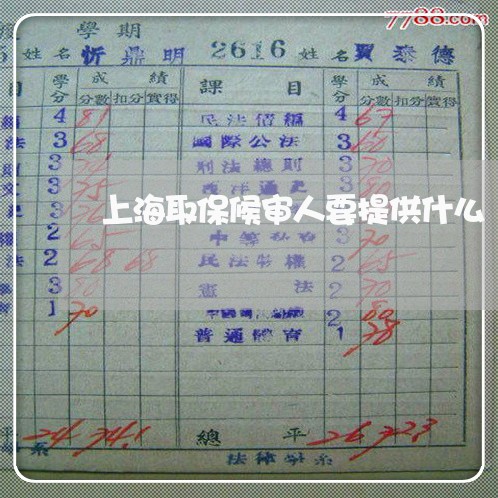 7788.com
學期
姓名 忻鼎明 2616 姓名 賈泰德
目 學分 成績 課目 學分 成績
分數 扣分 實得 分數 扣分 實得
4 81 民法債編 4 67
法 3 68 國際公法 3 60
3 刑法總則 3 70
3 75 西洋通史 3 80
上海取保候审人要提供什么
2 65 3 70
法 2 68 68 民法物權 2 65
3 80 憲法 2 70
1 70 2 80
普通體育 1 78
平 24 74.1 總平 26 72.3
系 法律學系